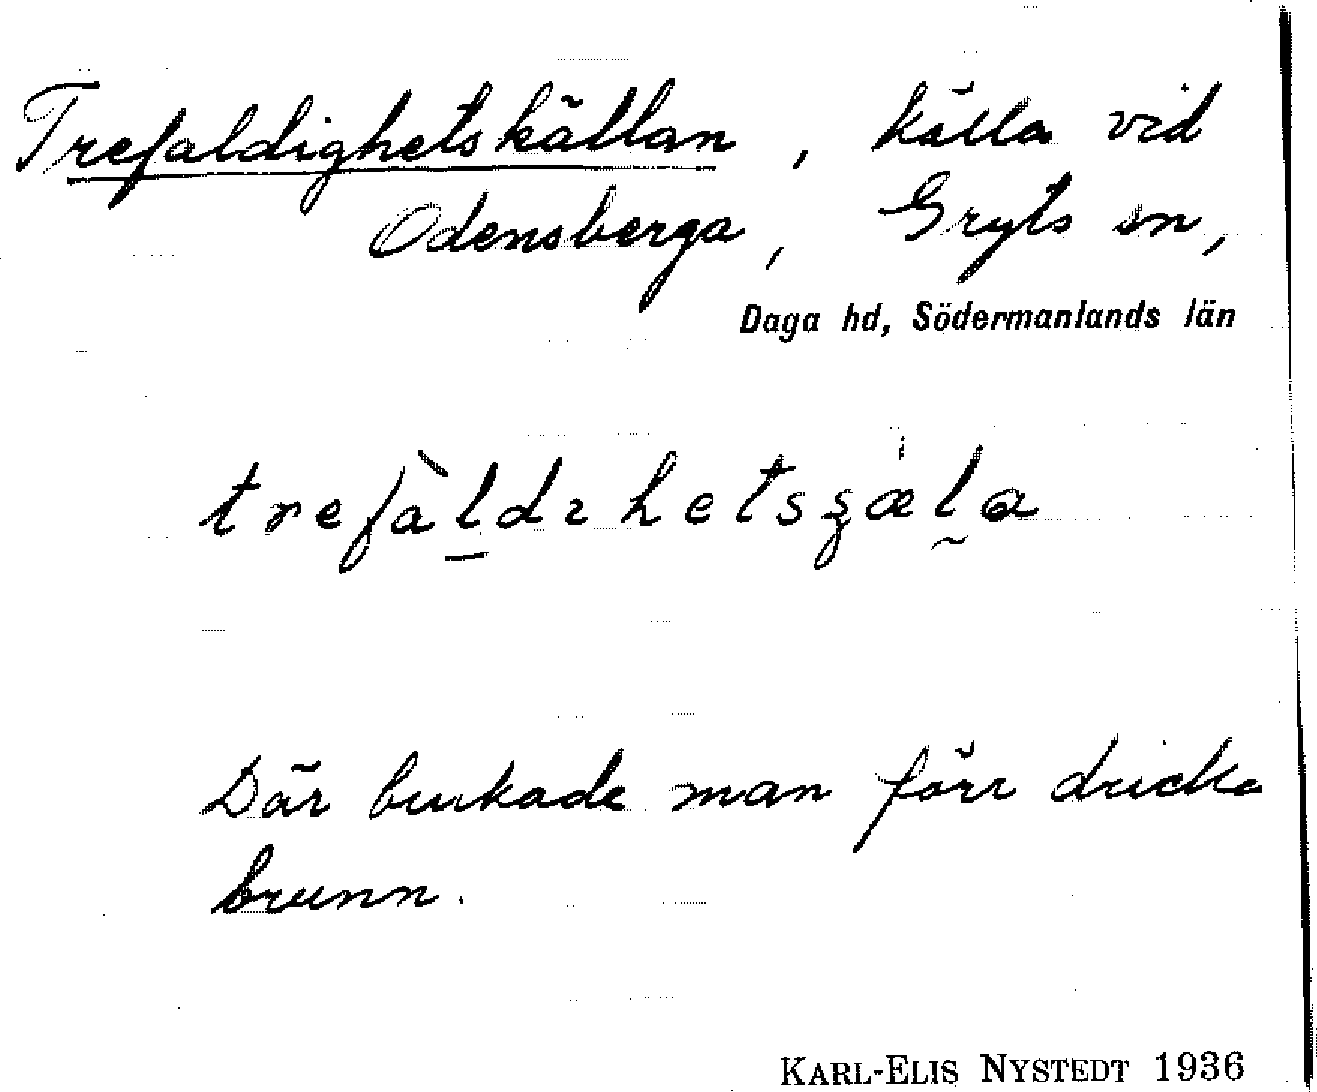 Trefaldighetskällan, källa vid
Odensberga, Gryts sn,
Daga hd, Södermanlands län
Där brukade man förr dricka
brunn.
KARL-ELIS NYSTEDT 1936